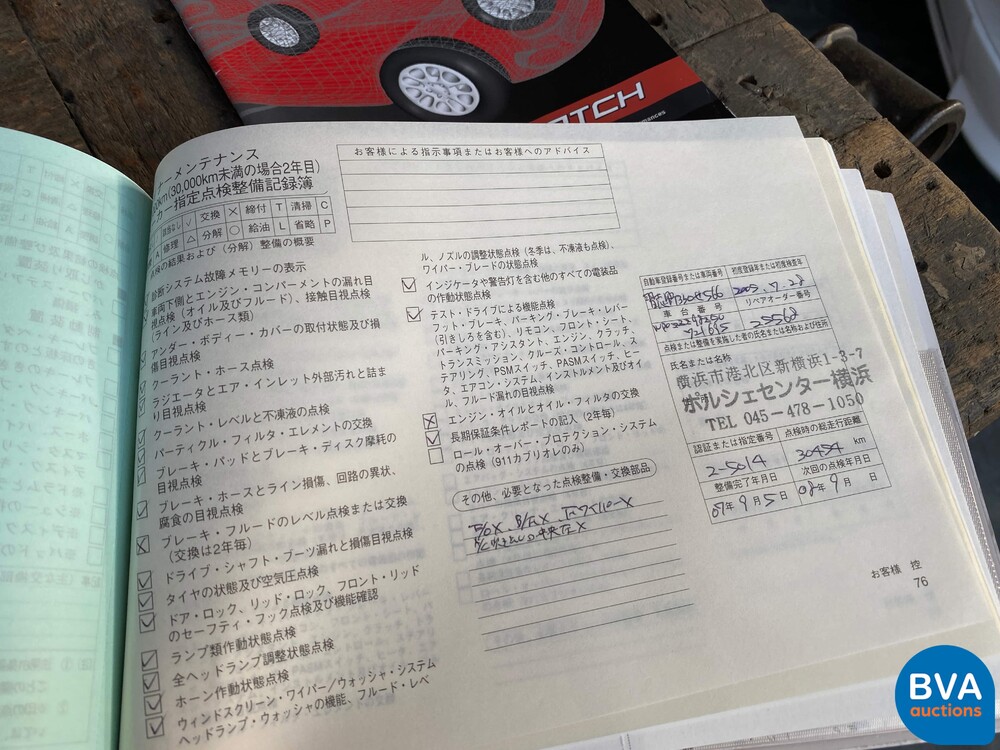 ATCH
ーメンテナンス
km(30,000km未満の場合2年目)
カー指定点検整備記録簿
お客様による指示事項またはお客様へのアドバイス
交換 ✕ 締付 T 清掃 C
修理 △ 分解 ○ 給油 L 省略 P
点検の結果および(分解)整備の概要
診断システム故障メモリーの表示
車両下側とエンジン・コンパーメントの漏れ目
視点検(オイル及びフルード)、接触目視点検
(ライン及びホース類)
アンダー・ボディー・カバーの取付状態及び損
傷目視点検
クーラント・ホース点検
ラジエータとエア・インレット外部汚れと詰ま
り目視点検
クーラント・レベルと不凍液の点検
パーティクル・フィルタ・エレメントの交換
ブレーキ・パッドとブレーキ・ディスク摩耗の
目視点検
ブレーキ・ホースとライン損傷、回路の異状、
腐食の目視点検
ブレーキ・フルードのレベル点検または交換
(交換は2年毎)
ドライブ・シャフト・ブーツ漏れと損傷目視点検
タイヤの状態及び空気圧点検
ドア・ロック、リッド・ロック、フロント・リッド
のセーフティ・フック点検及び機能確認
ランプ類作動状態点検
全ヘッドランプ調整状態点検
ホーン作動状態点検
ウィンドスクリーン・ワイパー/ウォッシャ・システム
ヘッドランプ・ウォッシャの機能、フルード・レベ
ル、ノズルの調整状態点検(冬季は、不凍液も点検)、
ワイパー・ブレードの状態点検
インジケータや警告灯を含む他のすべての電装品
の作動状態点検
テスト・ドライブによる機能点検
フット・ブレーキ、パーキング・ブレーキ・レバー
(引きしろを含む)、リモコン、フロント・シート、
パーキング・アシスタント、エンジン、クラッチ、
トランスミッション、クルーズ・コントロール、ス
テアリング、PSMスイッチ、PASMスイッチ、ヒー
タ、エアコン・システム、インストルメント及びオイ
ル、フルード漏れの目視点検
エンジン・オイルとオイル・フィルタの交換
長期保証条件レポートの記入(2年毎)
ロール・オーバー・プロテクション・システム
の点検(911カブリオレのみ)
その他、必要となった点検整備・交換部品
自動車登録番号または車両番号 初度登録年または初度検査年
2005.7.28
車台番号 リペアオーダー番号
25562
点検または整備を実施した者の氏名または名称および住所
氏名または名称
横浜市港北区新横浜1-3-7
ポルシェセンター横浜
TEL 045-478-1050
認証または指定番号 点検時の総走行距離
2-5014 30454 km
整備完了年月日 次回の点検年月日
07年9月5日 08年9月 日
お客様 控
76
BVA
auctions